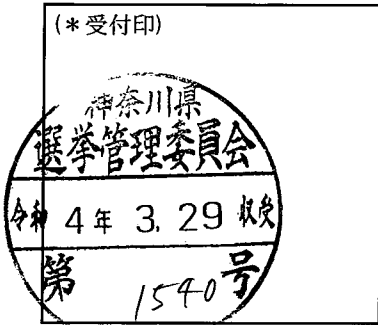 (＊受付印)
神奈川県
選挙管理委員会
令和 4年 3.29 収受
第 1540 号